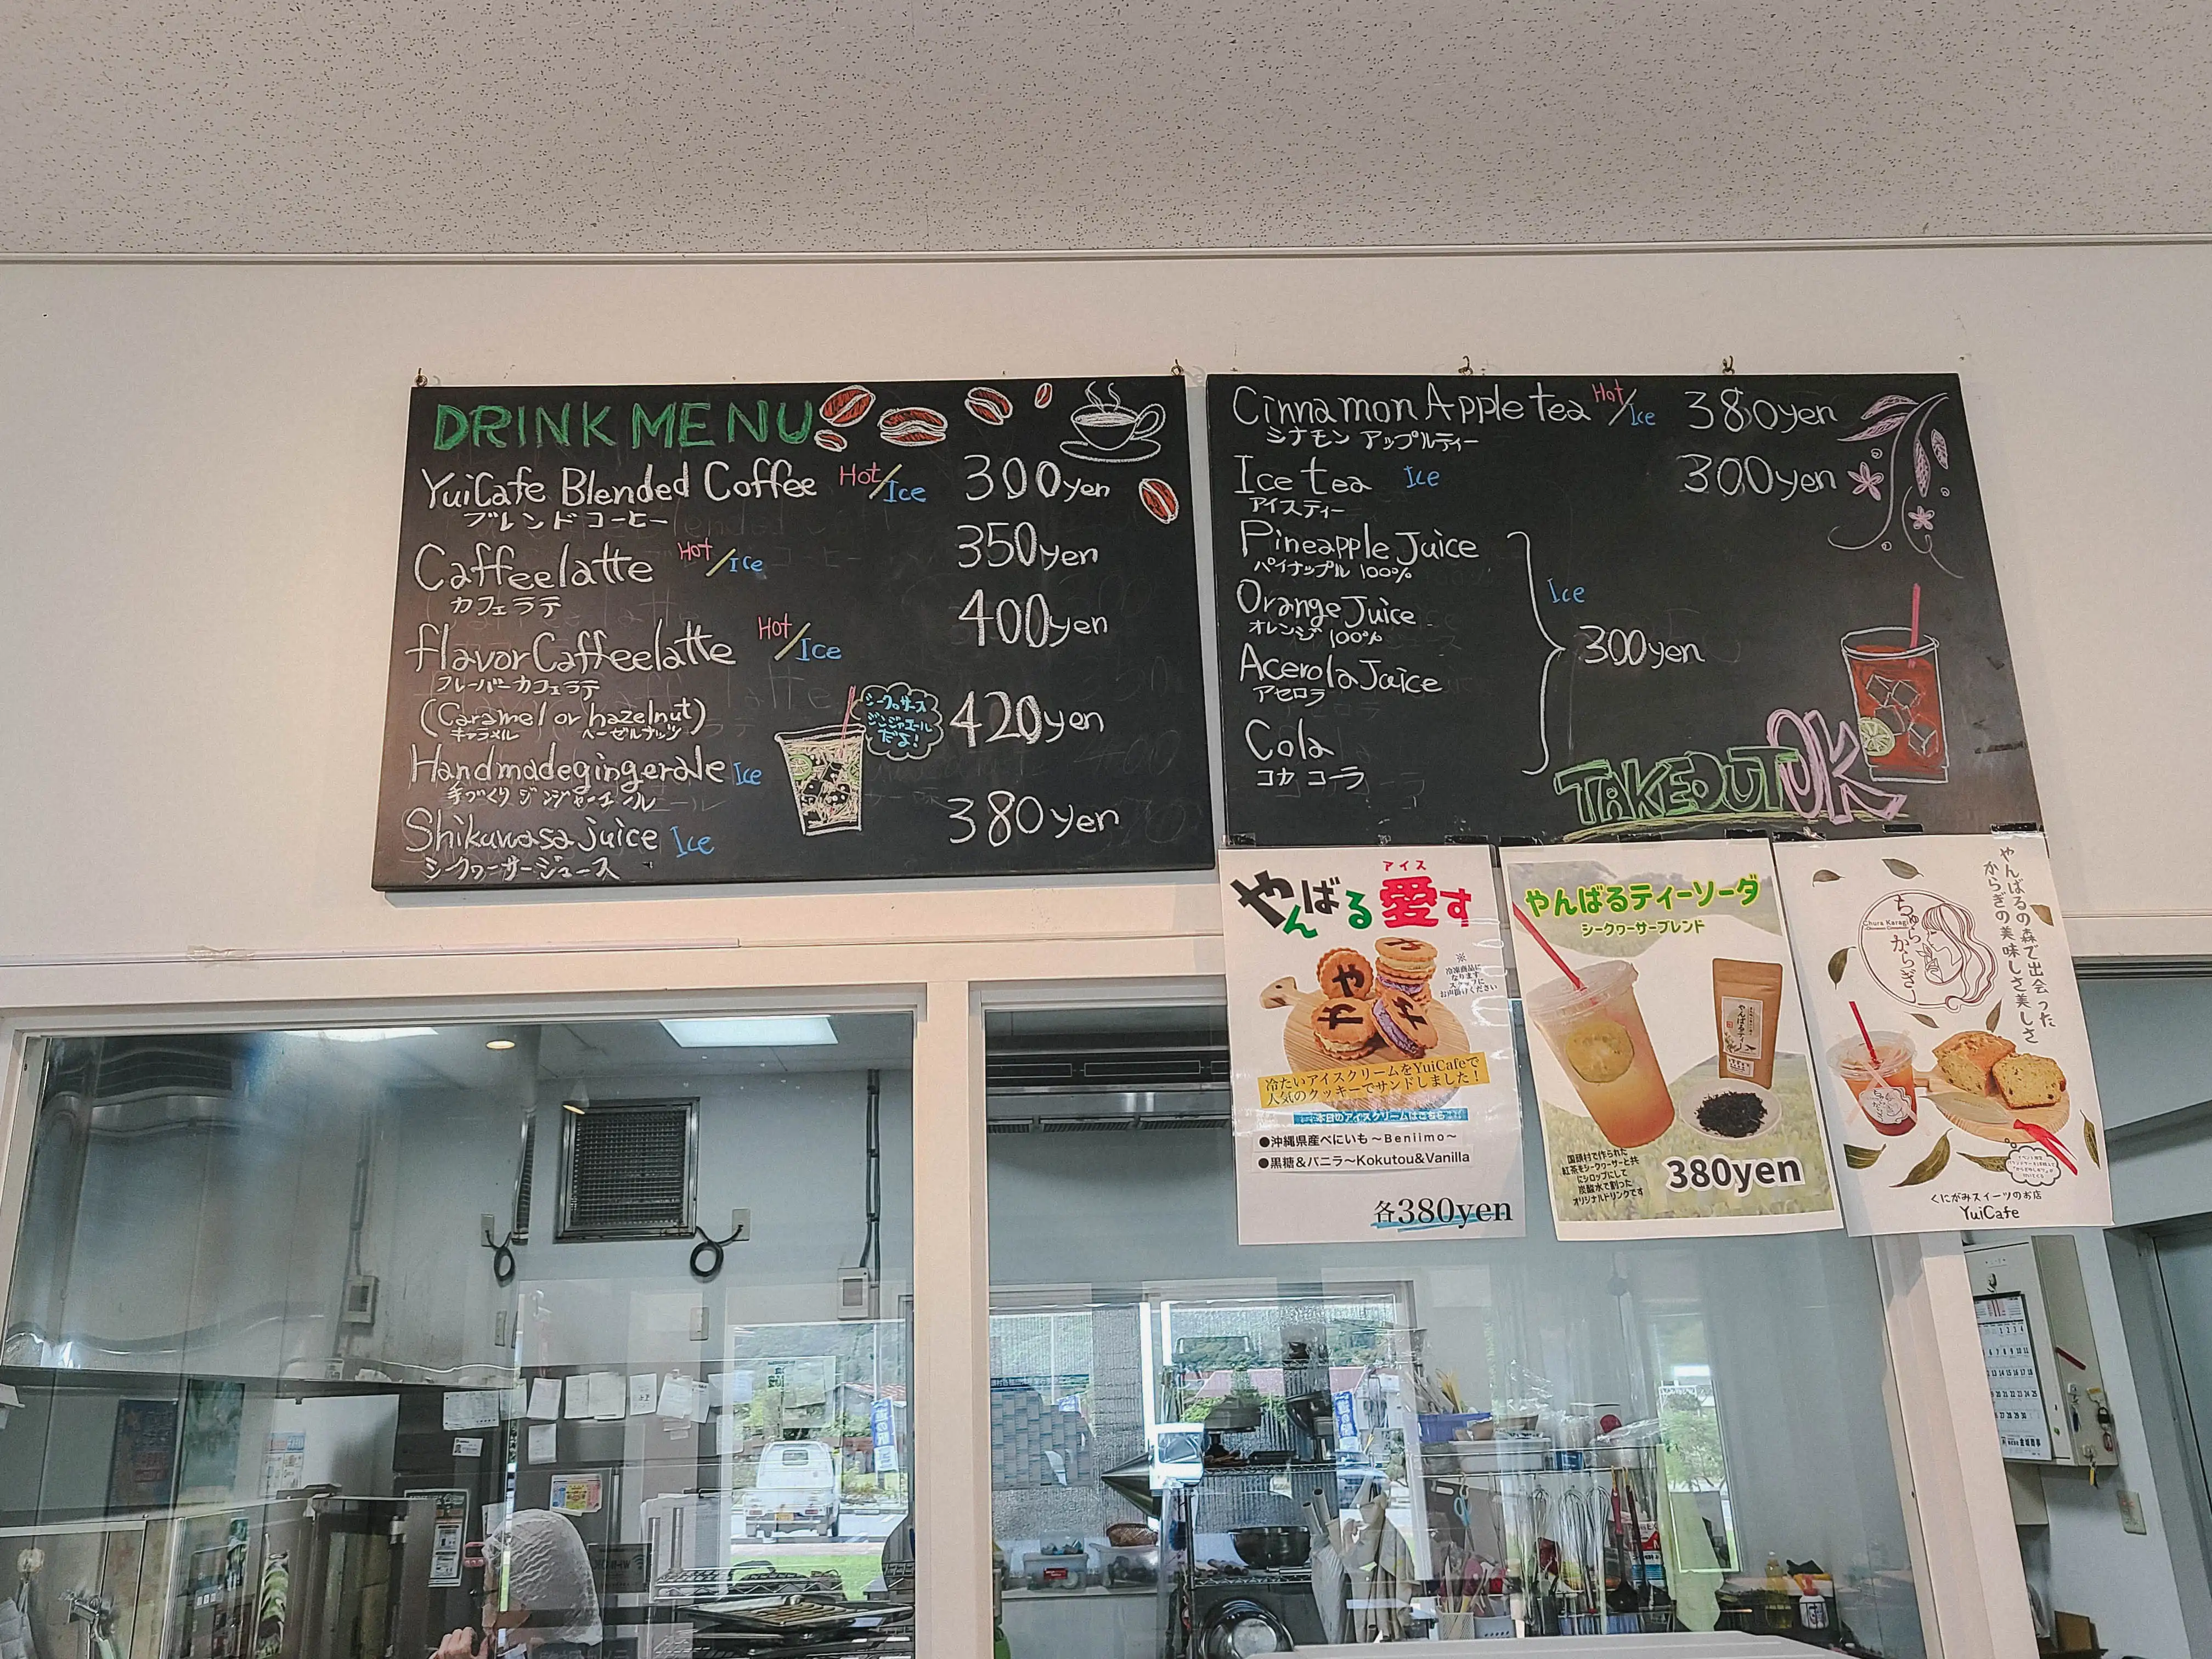 DRINK MENU
YuiCafe Blended Coffee Hot/Ice 300yen
ブレンドコーヒー
Caffeelatte Hot/Ice 350yen
カフェラテ
flavorCaffeelatte Hot/Ice 400yen
フレーバーカフェラテ
(Caramel or hazelnut)
キャラメル ヘーゼルナッツ
Handmadegingerale Ice 420yen
手づくりジンジャーエール
シークワーサー
ジンジャエール
だよ!
Shikuwasa juice Ice 380yen
シークワーサージュース
Cinnamon Apple tea Hot/Ice 380yen
シナモン アップルティー
Ice tea Ice 300yen
アイスティー
Pineapple Juice
パイナップル 100%
Orange Juice
オレンジ 100%
Acerola Juice
アセロラ
Cola
コカ コーラ
Ice
300yen
TAKEOUT OK
アイス
やんばる愛す
※
冷凍商品に
なります
スタッフに
お声掛けください
冷たいアイスクリームをYuiCafeで
人気のクッキーでサンドしました!
本日のアイスクリームはこちら
●沖縄県産べにいも～Beniimo～
●黒糖&バニラ～Kokutou&Vanilla
各380yen
やんばるティーソーダ
シークヮーサーブレンド
やんばるティー
国頭村で作られた
紅茶をシークヮーサーと共
にシロップにして
炭酸水で割った
オリジナルドリンクです
380yen
やんばるの森で出会った
からぎの美味しさ美しさ
Chura Karagi
ちゅらからぎ
くにがみスイーツのお店
YuiCafe